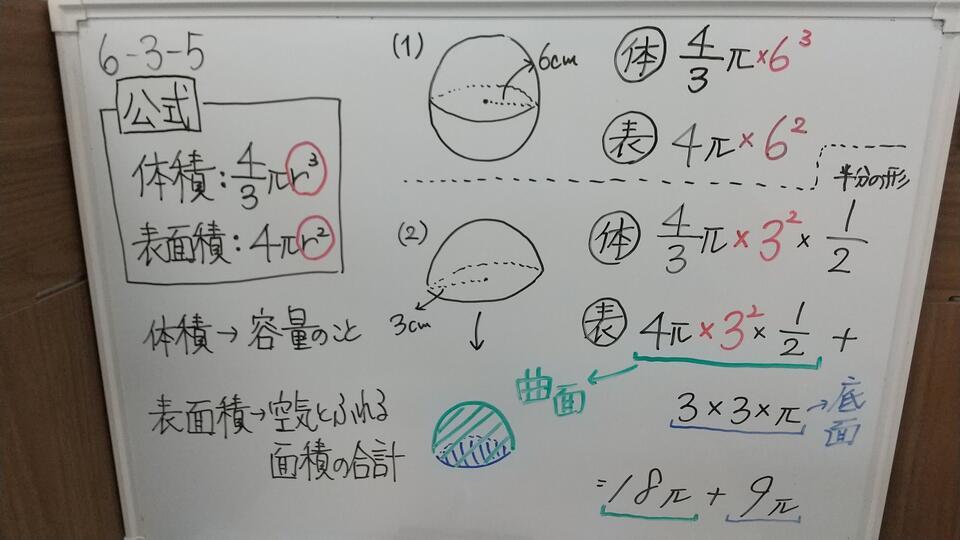 6-3-5
公式
体積:4/3πr³
表面積:4πr²
体積→容量のこと
表面積→空気とふれる
面積の合計
(1)
6cm
体 4/3π×6³
表 4π×6²
半分の形
(2)
3cm
体 4/3π×3²×1/2
表 4π×3²×1/2+
曲面
3×3×π→底面
=18π+9π